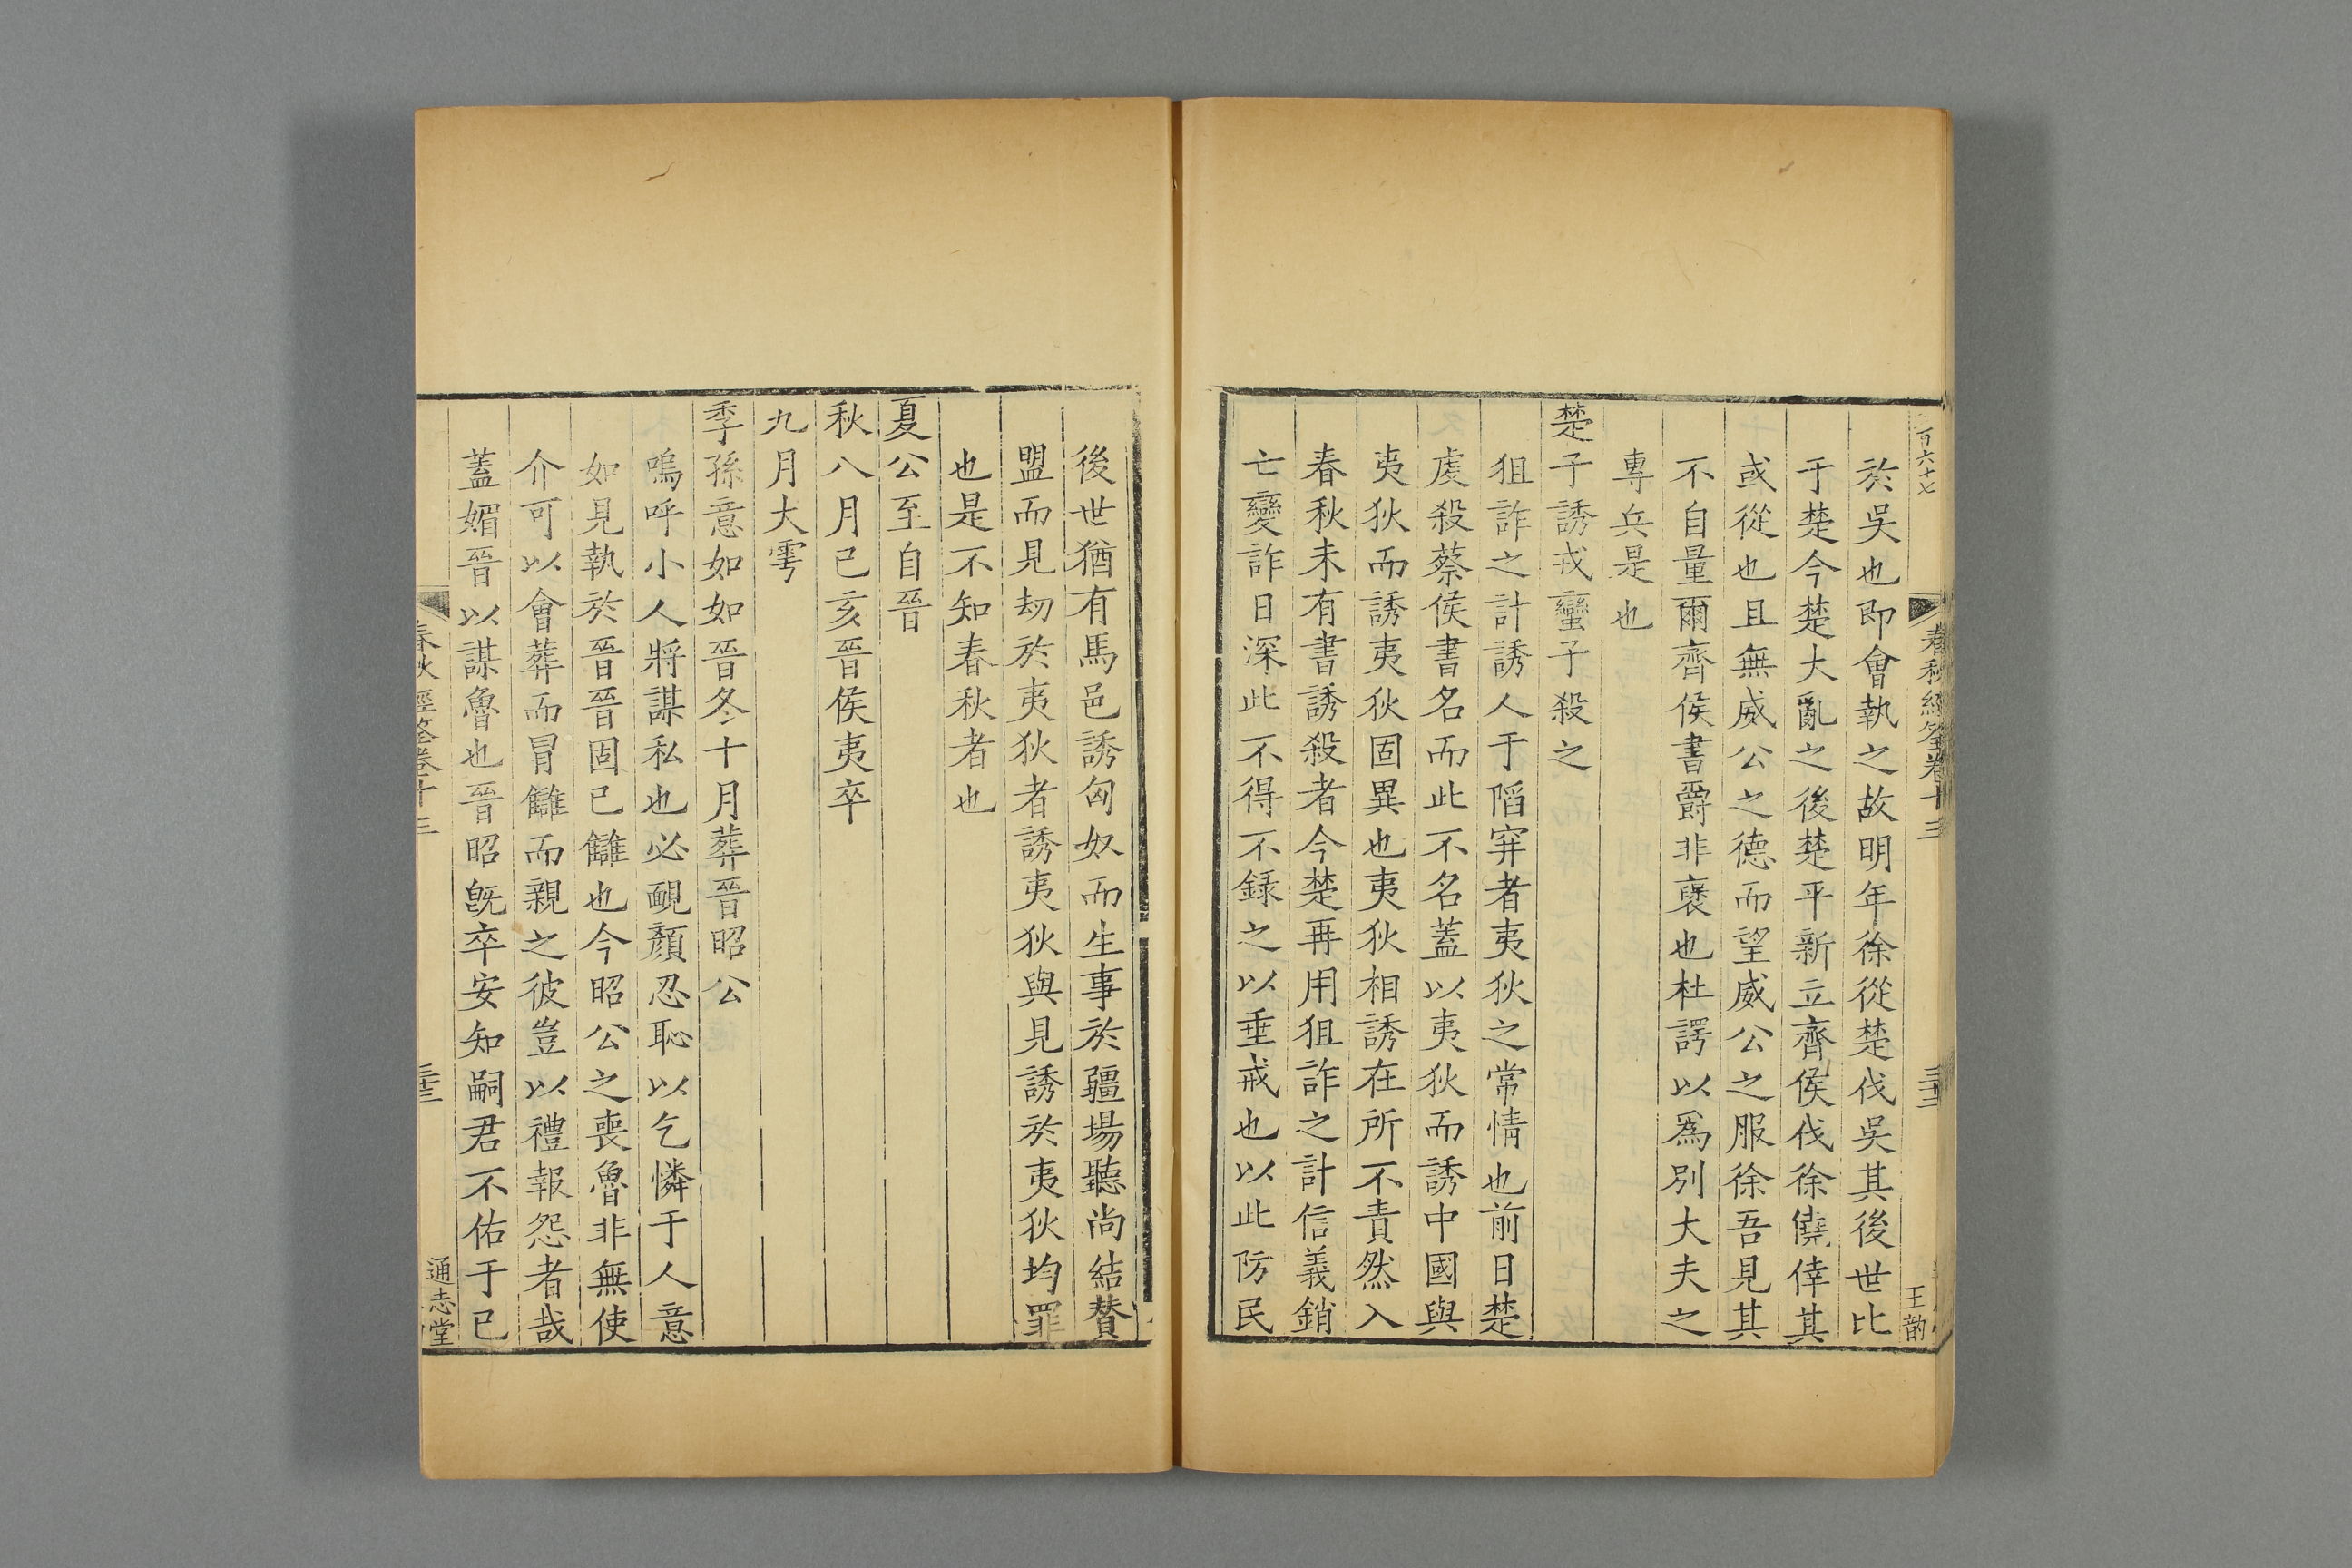 百六十七
春秋經筌卷十三
三十二
王韵
於吳也即會執之故明年徐從楚伐吳其後世比
于楚今楚大亂之後楚平新立齊侯伐徐僥倖其
或從也且無威公之德而望威公之服徐吾見其
不自量爾齊侯書爵非襃也杜諤以爲別大夫之
專兵是也
楚子誘戎蠻子殺之
狙詐之計誘人于䧟穽者夷狄之常情也前日楚
虔殺蔡侯書名而此不名蓋以夷狄而誘中國與
夷狄而誘夷狄固異也夷狄相誘在所不責然入
春秋未有書誘殺者今楚再用狙詐之計信義銷
亡變詐日深此不得不録之以垂戒也以此防民
後世猶有馬邑誘匈奴而生事於疆場聽尚結贊
盟而見刼於夷狄者誘夷狄與見誘於夷狄均罪
也是不知春秋者也
夏公至自晉
秋八月己亥晉侯夷卒
九月大雩
季孫意如如晉冬十月葬晉昭公
嗚呼小人將謀私也必靦顏忍恥以乞憐于人意
如見執於晉晉固已讎也今昭公之喪魯非無使
介可以會葬而冒讎而親之彼豈以禮報怨者哉
蓋媚晉以謀魯也晉昭旣卒安知嗣君不佑于已
春秋經筌卷十三
三十三
通志堂